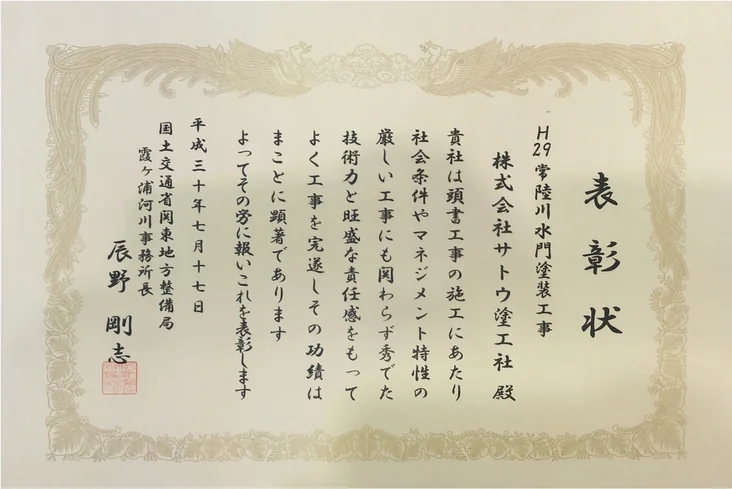 表彰状
H29常陸川水門塗装工事
株式会社サトウ塗工社 殿
貴社は頭書工事の施工にあたり
社会条件やマネジメント特性の
厳しい工事にも関わらず秀でた
技術力と旺盛な責任感をもって
よく工事を完遂しその功績は
まことに顕著であります
よってその労に報いこれを表彰します
平成三十年七月十七日
国土交通省関東地方整備局
霞ヶ浦河川事務所長
辰野 剛志